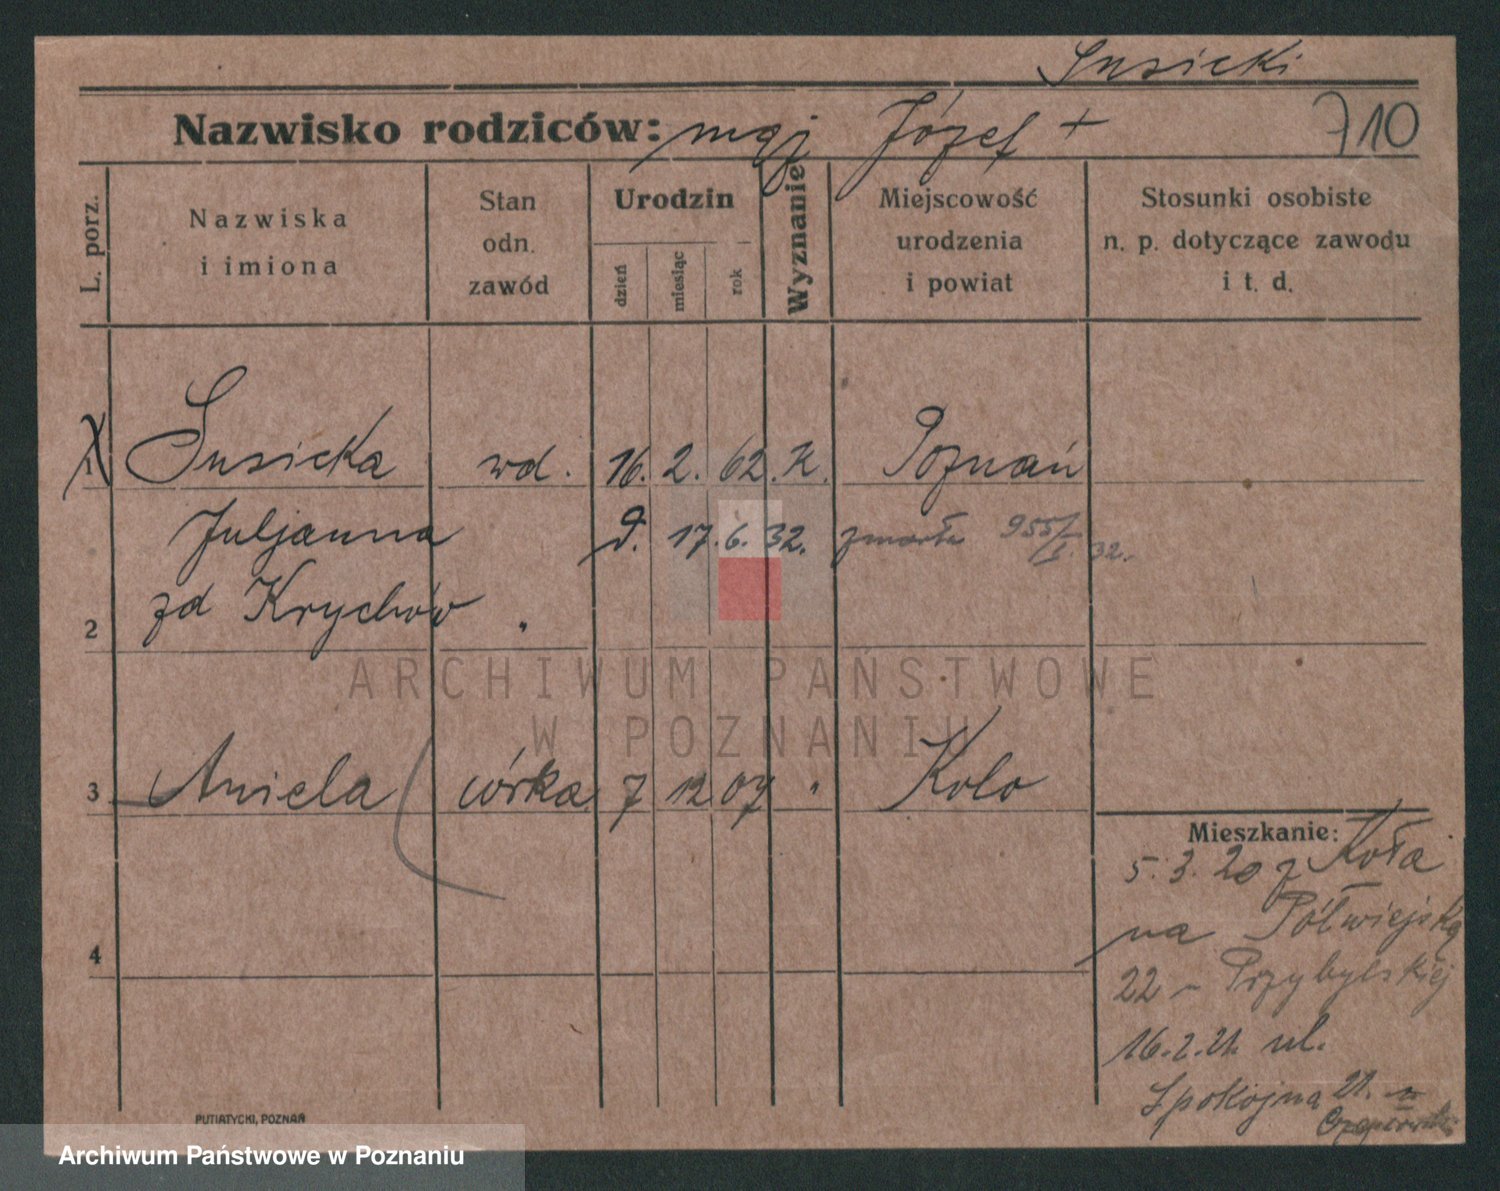 Susicki
Nazwisko rodziców: mąż Józef +
710
L. porz.
Nazwiska
i imiona
Stan
odn.
zawód
Urodzin
dzień
miesiąc
rok
Wyznanie
Miejscowość
urodzenia
i powiat
Stosunki osobiste
n. p. dotyczące zawodu
i t. d.
1 Susicka wd. 16. 2. 62. K. Poznań
Juljanna 17. 6. 32. zmarła 955/I. 32.
2 zd Krychów
ARCHIWUM PAŃSTWOWE
W POZNANIU
3 Aniela córka 7 12 07 " Koło
Mieszkanie:
5. 3. 20 z Koła
na Półwiejską
4
22 - Przybylskiej
16. 2. 21. ul.
Spokojna 21.
PUTIATYCKI, POZNAŃ
Archiwum Państwowe w Poznaniu